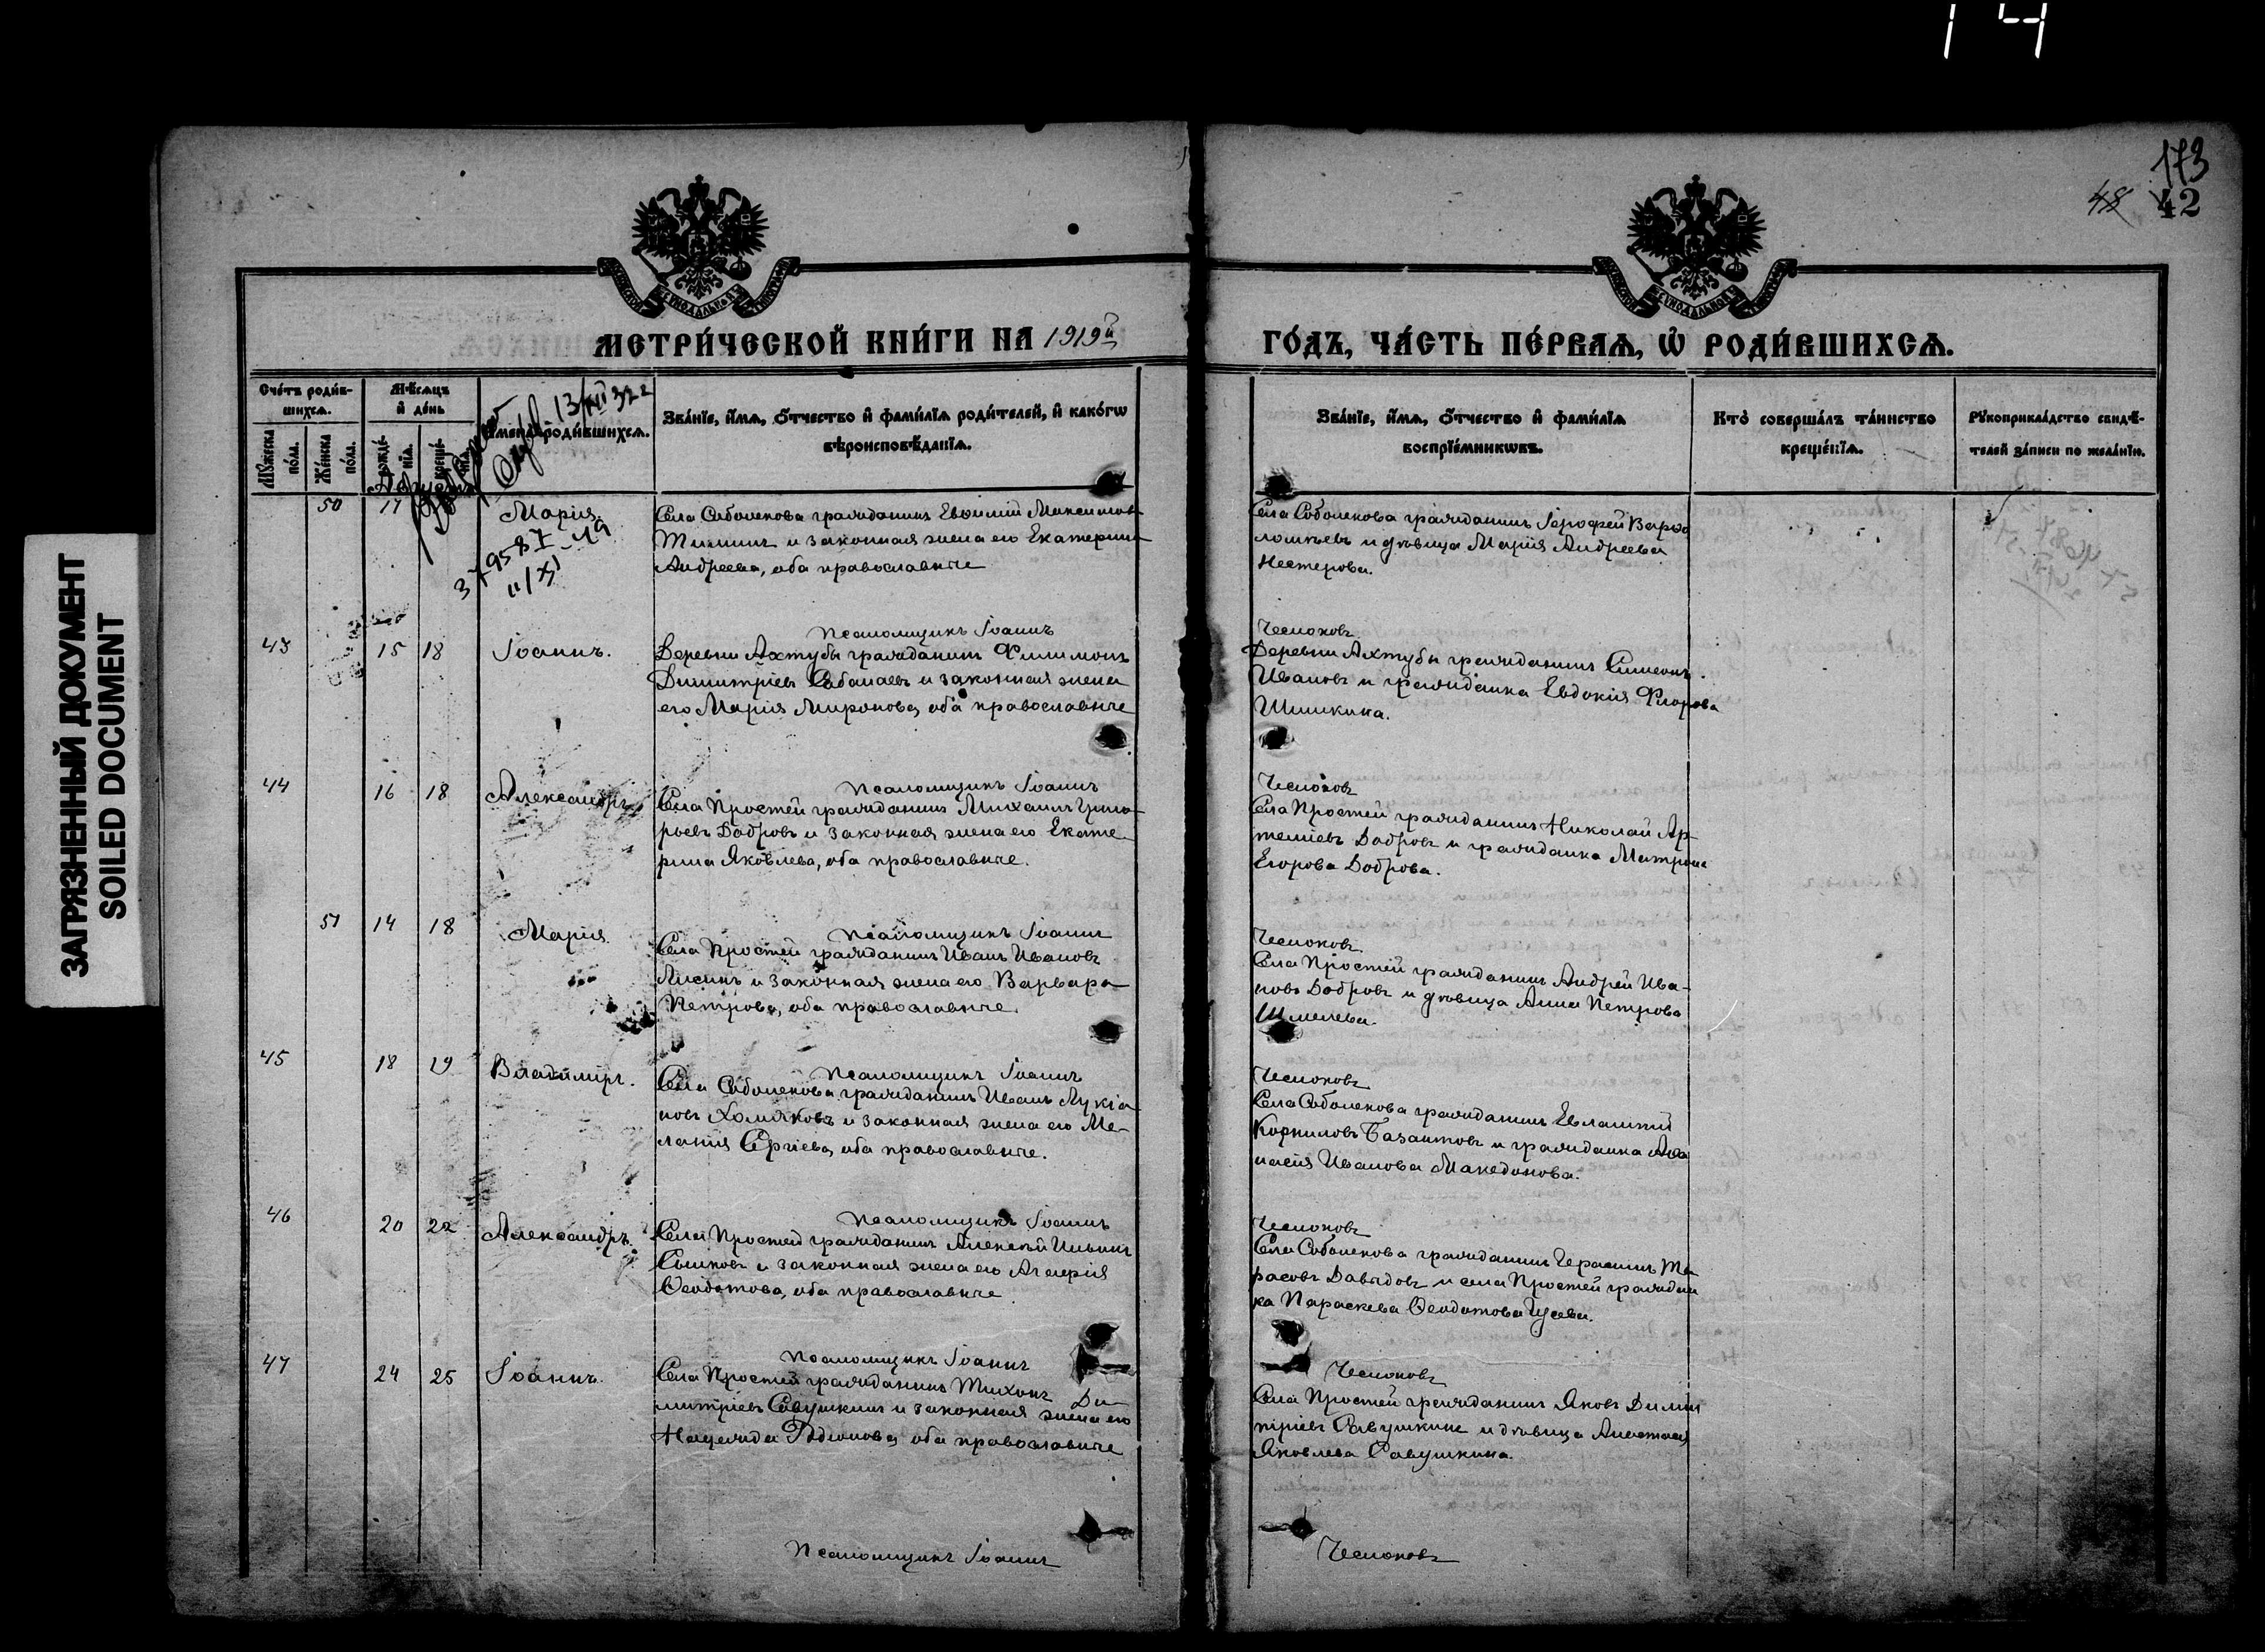 14
173
48 42
ЗАГРЯЗНЕННЫЙ ДОКУМЕНТ
SOILED DOCUMENT
МЕТРИ́ЧЕСКОЙ КНИ́ГИ НА 1919й
ГО́ДЪ, ЧА́СТЬ ПЕ́РВАѦ, Ѡ҆ РОДИ́ВШИХСѦ.
Сче́тъ роди́в-
шихсѧ.
Мꙋ́жеска по́ла.
Же́нска по́ла.
Мѣ́сѧцъ
и҆ де́нь
рожде́нїѧ.
креще́нїѧ.
И҆мена̀ роди́вшихсѧ.
Зва́нїе, и҆́мѧ, ѻ҆́тчество и҆ фами́лїѧ роди́телей, и҆ како́гѡ
вѣроисповѣ́данїѧ.
Зва́нїе, и҆́мѧ, ѻ҆́тчество и҆ фами́лїѧ
воспрїе́мникѡвъ.
Кто̀ соверша́лъ та́инство
креще́нїѧ.
Рꙋкоприкла́дство свидѣ́-
телей за́писи по жела́нїю.
50 17
Марія.
Села Соболекова гражданинъ Евѳимій Максимовъ
и законная жена его Екатерина
Андреева, оба православные
Села Соболекова гражданинъ Іерофей Варѳо
ломѣевъ и дѣвица Марія Андреева
Нестерова.
Псаломщикъ Іоаннъ
Чесноковъ
43 15 18 Іоаннъ.
Деревни Ахтубы гражданинъ Филимонъ
Димитріевъ Сабанаевъ и законная жена
его Марія Миронова, оба православные
Деревни Ахтубы гражданинъ Симеонъ
Ивановъ и гражданка Евдокія Флорова
Шишкина.
Псаломщикъ Іоаннъ
Чесноковъ
44 16 18 Александръ
Села Простей гражданинъ Михаилъ Григо-
рьевъ Бобровъ и законная жена его Екате-
рина Яковлева, оба православные.
Села Простей гражданинъ Николай Ар-
темiевъ Бобровъ и гражданка Матрона
Егорова Боброва.
Псаломщикъ Іоаннъ
Чесноковъ
51 14 18 Марія.
Села Простей гражданинъ Иванъ Ивановъ
Лисинъ и законная жена его Варвара
Петрова, оба православные.
Села Простей гражданинъ Андрей Ива-
новъ Бобровъ и дѣвица Анна Петрова
Шмелева.
Псаломщикъ Іоаннъ
Чесноковъ
45 18 19 Владиміръ.
Села Соболекова гражданинъ Иванъ Лукіа-
новъ Хомяковъ и законная жена его Ме-
ланія Сергіева, оба православные.
Села Соболекова гражданинъ Евлампій
Корниловъ и гражданка Аѳа
насія Иванова Македонова.
Псаломщикъ Іоаннъ
Чесноковъ
46 20 22 Александръ.
Села Простей гражданинъ Алексѣй Ильинъ
и законная жена его
Ѳеодотова, оба православные
Села Соболекова гражданинъ Герасимъ Та-
расовъ Давыдовъ и села Простей граждан
ка Параскева Ѳеодотова Гусева.
Псаломщикъ Іоаннъ
Чесноковъ
47 24 25 Іоаннъ.
Села Простей гражданинъ Тихонъ Ди-
митріевъ Савушкинъ и законная жена его
Надежда Родіонова, оба православные
Села Простей гражданинъ Яковъ Димит
тріевъ Савушкинъ и дѣвица Анастасія
Яковлева Савушкина.
Псаломщикъ Іоаннъ
Чесноковъ